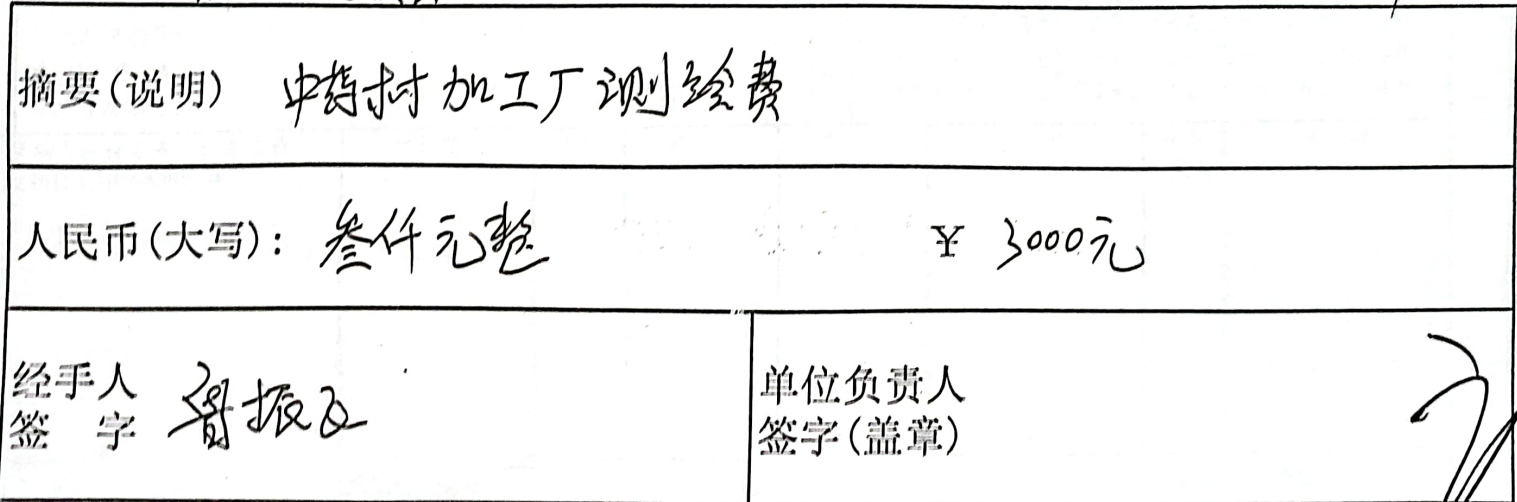 摘要(说明) 中药材加工厂测绘费
人民币(大写): 叁仟元整 ¥ 3000元
经手人
签 字 振
单位负责人
签字(盖章)